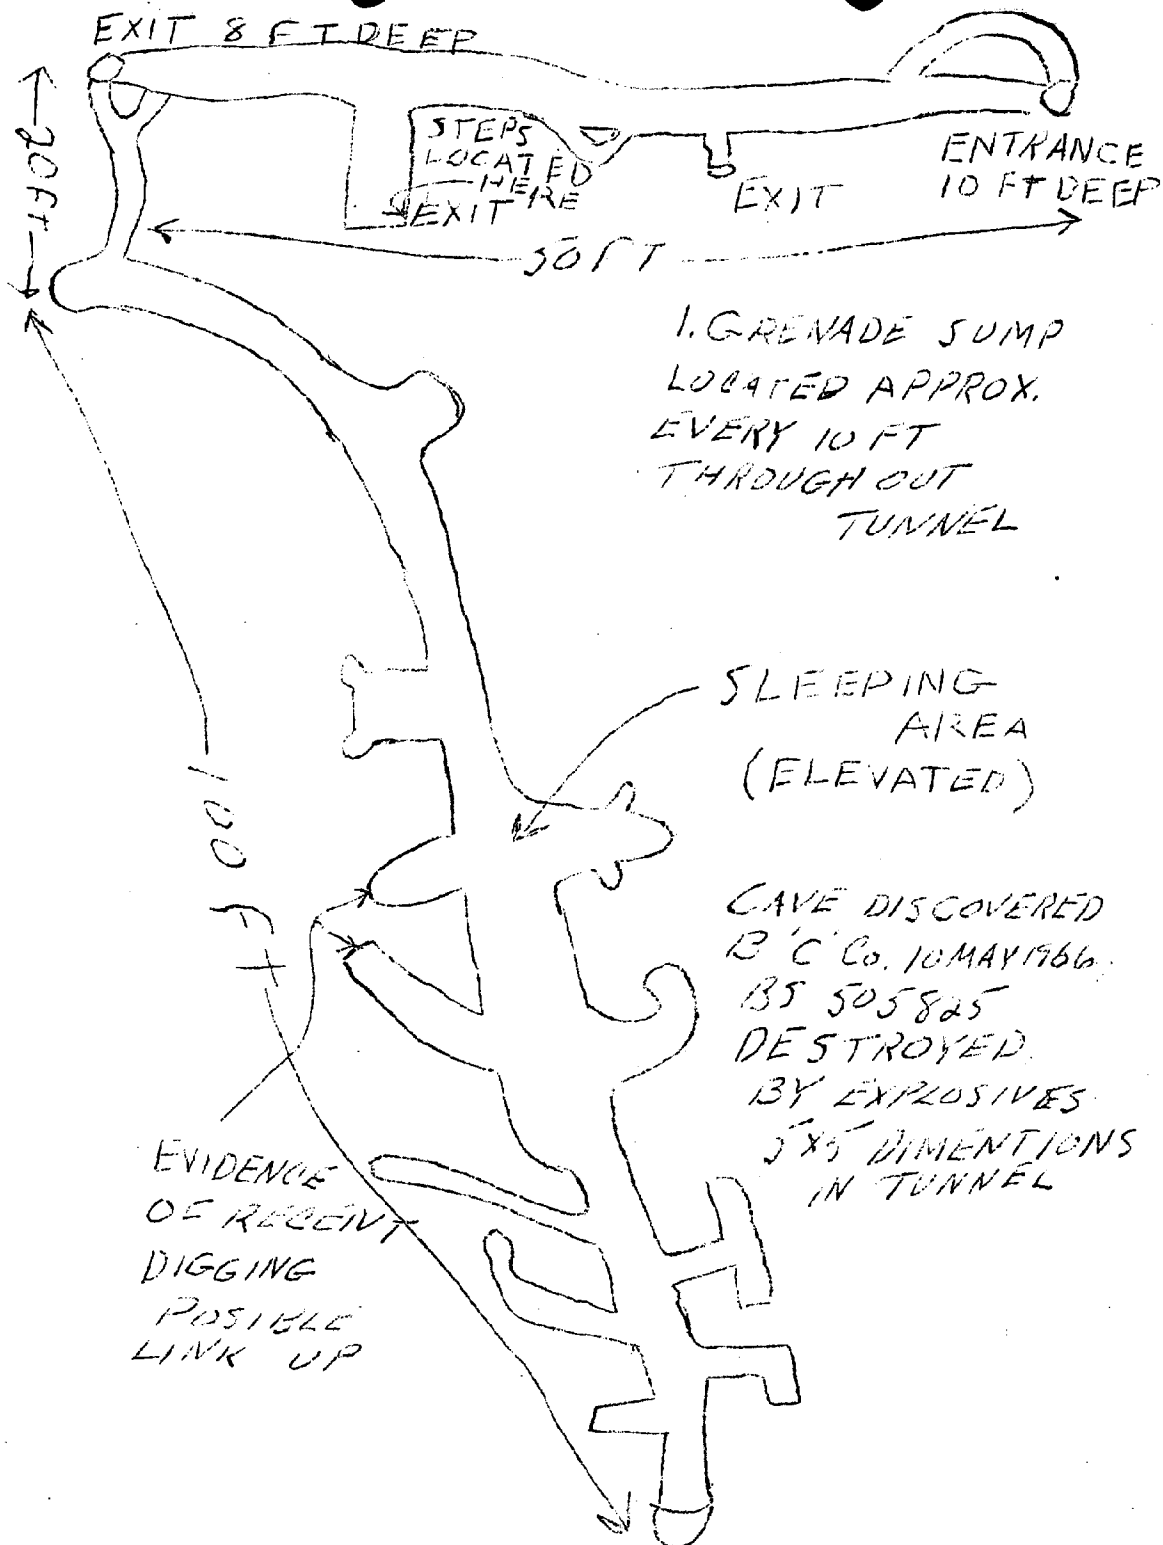 EXIT 8 FT DEEP
20 FT
STEPS
LOCATED
HERE
EXIT
EXIT
ENTRANCE
10 FT DEEP
50 FT
1. GRENADE SUMP
LOCATED APPROX.
EVERY 10 FT
THROUGH OUT
TUNNEL
SLEEPING
AREA
(ELEVATED)
100 FT
CAVE DISCOVERED
B 'C' Co. 10 MAY 1966
BS 505825
DESTROYED
BY EXPLOSIVES
5X5 DIMENTIONS
IN TUNNEL
EVIDENCE
OF RECENT
DIGGING
POSIBLE
LINK UP